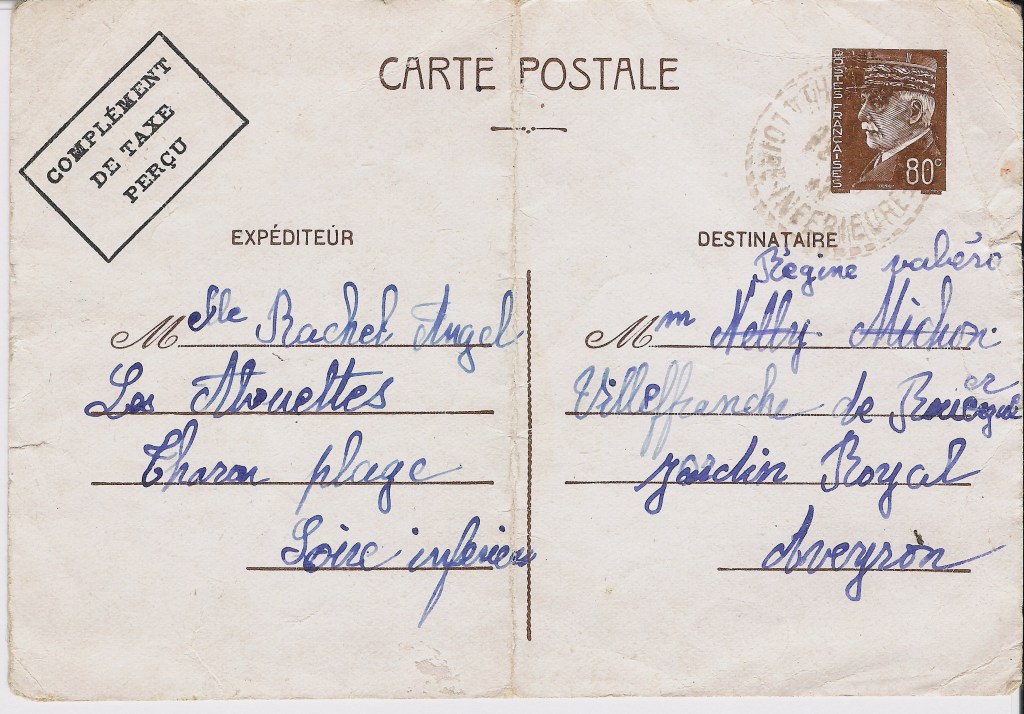 CARTE POSTALE
COMPLÉMENT
DE TAXE
PERÇU
POSTES FRANÇAISES
80c
LOIRE-INFERIEURE
EXPÉDITEUR
Melle Rachel Angel
Les Alouettes
Tharon plage
Loire inferieu
DESTINATAIRE
Régine valéro
Mm Nelly Michon
Villeffranche de Rouergue
jardin Royal
Aveyron